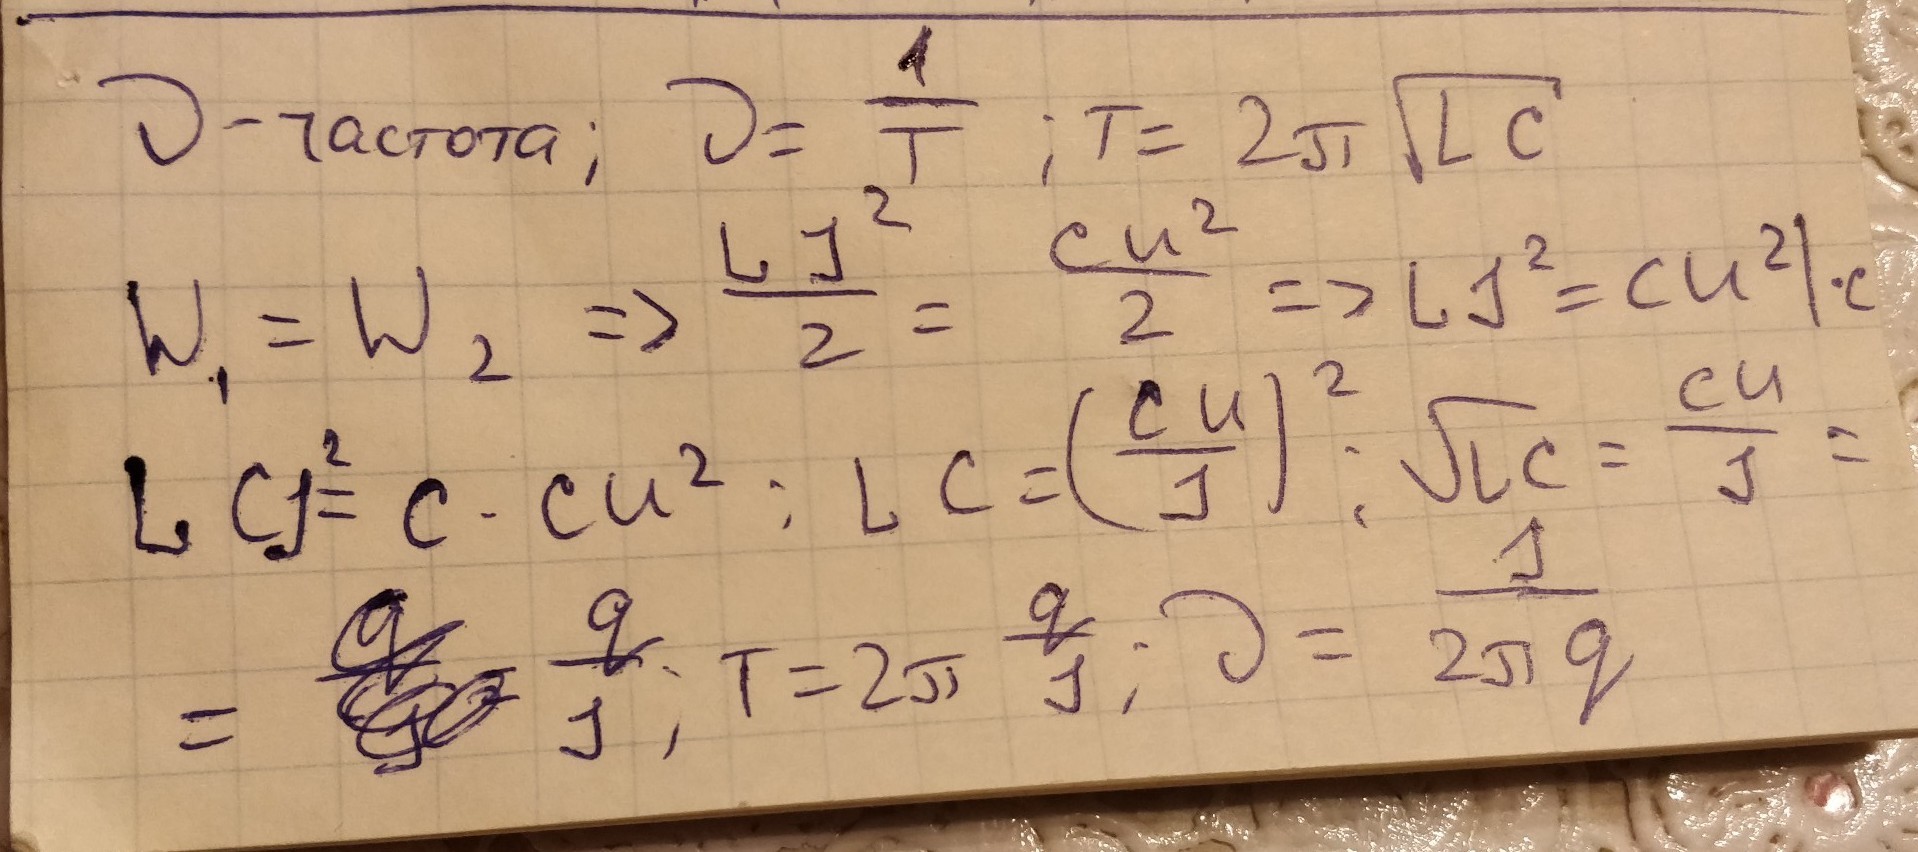 ν - частота; ν = 1/T ; T = 2π √LC
W₁ = W₂ => LJ²/2 = cu²/2 => LJ² = cu² | · c
LCJ² = c · cu² ; LC = (cu/J)² ; √LC = cu/J =
= q/J ; T = 2π q/J ; ν = J/2πq